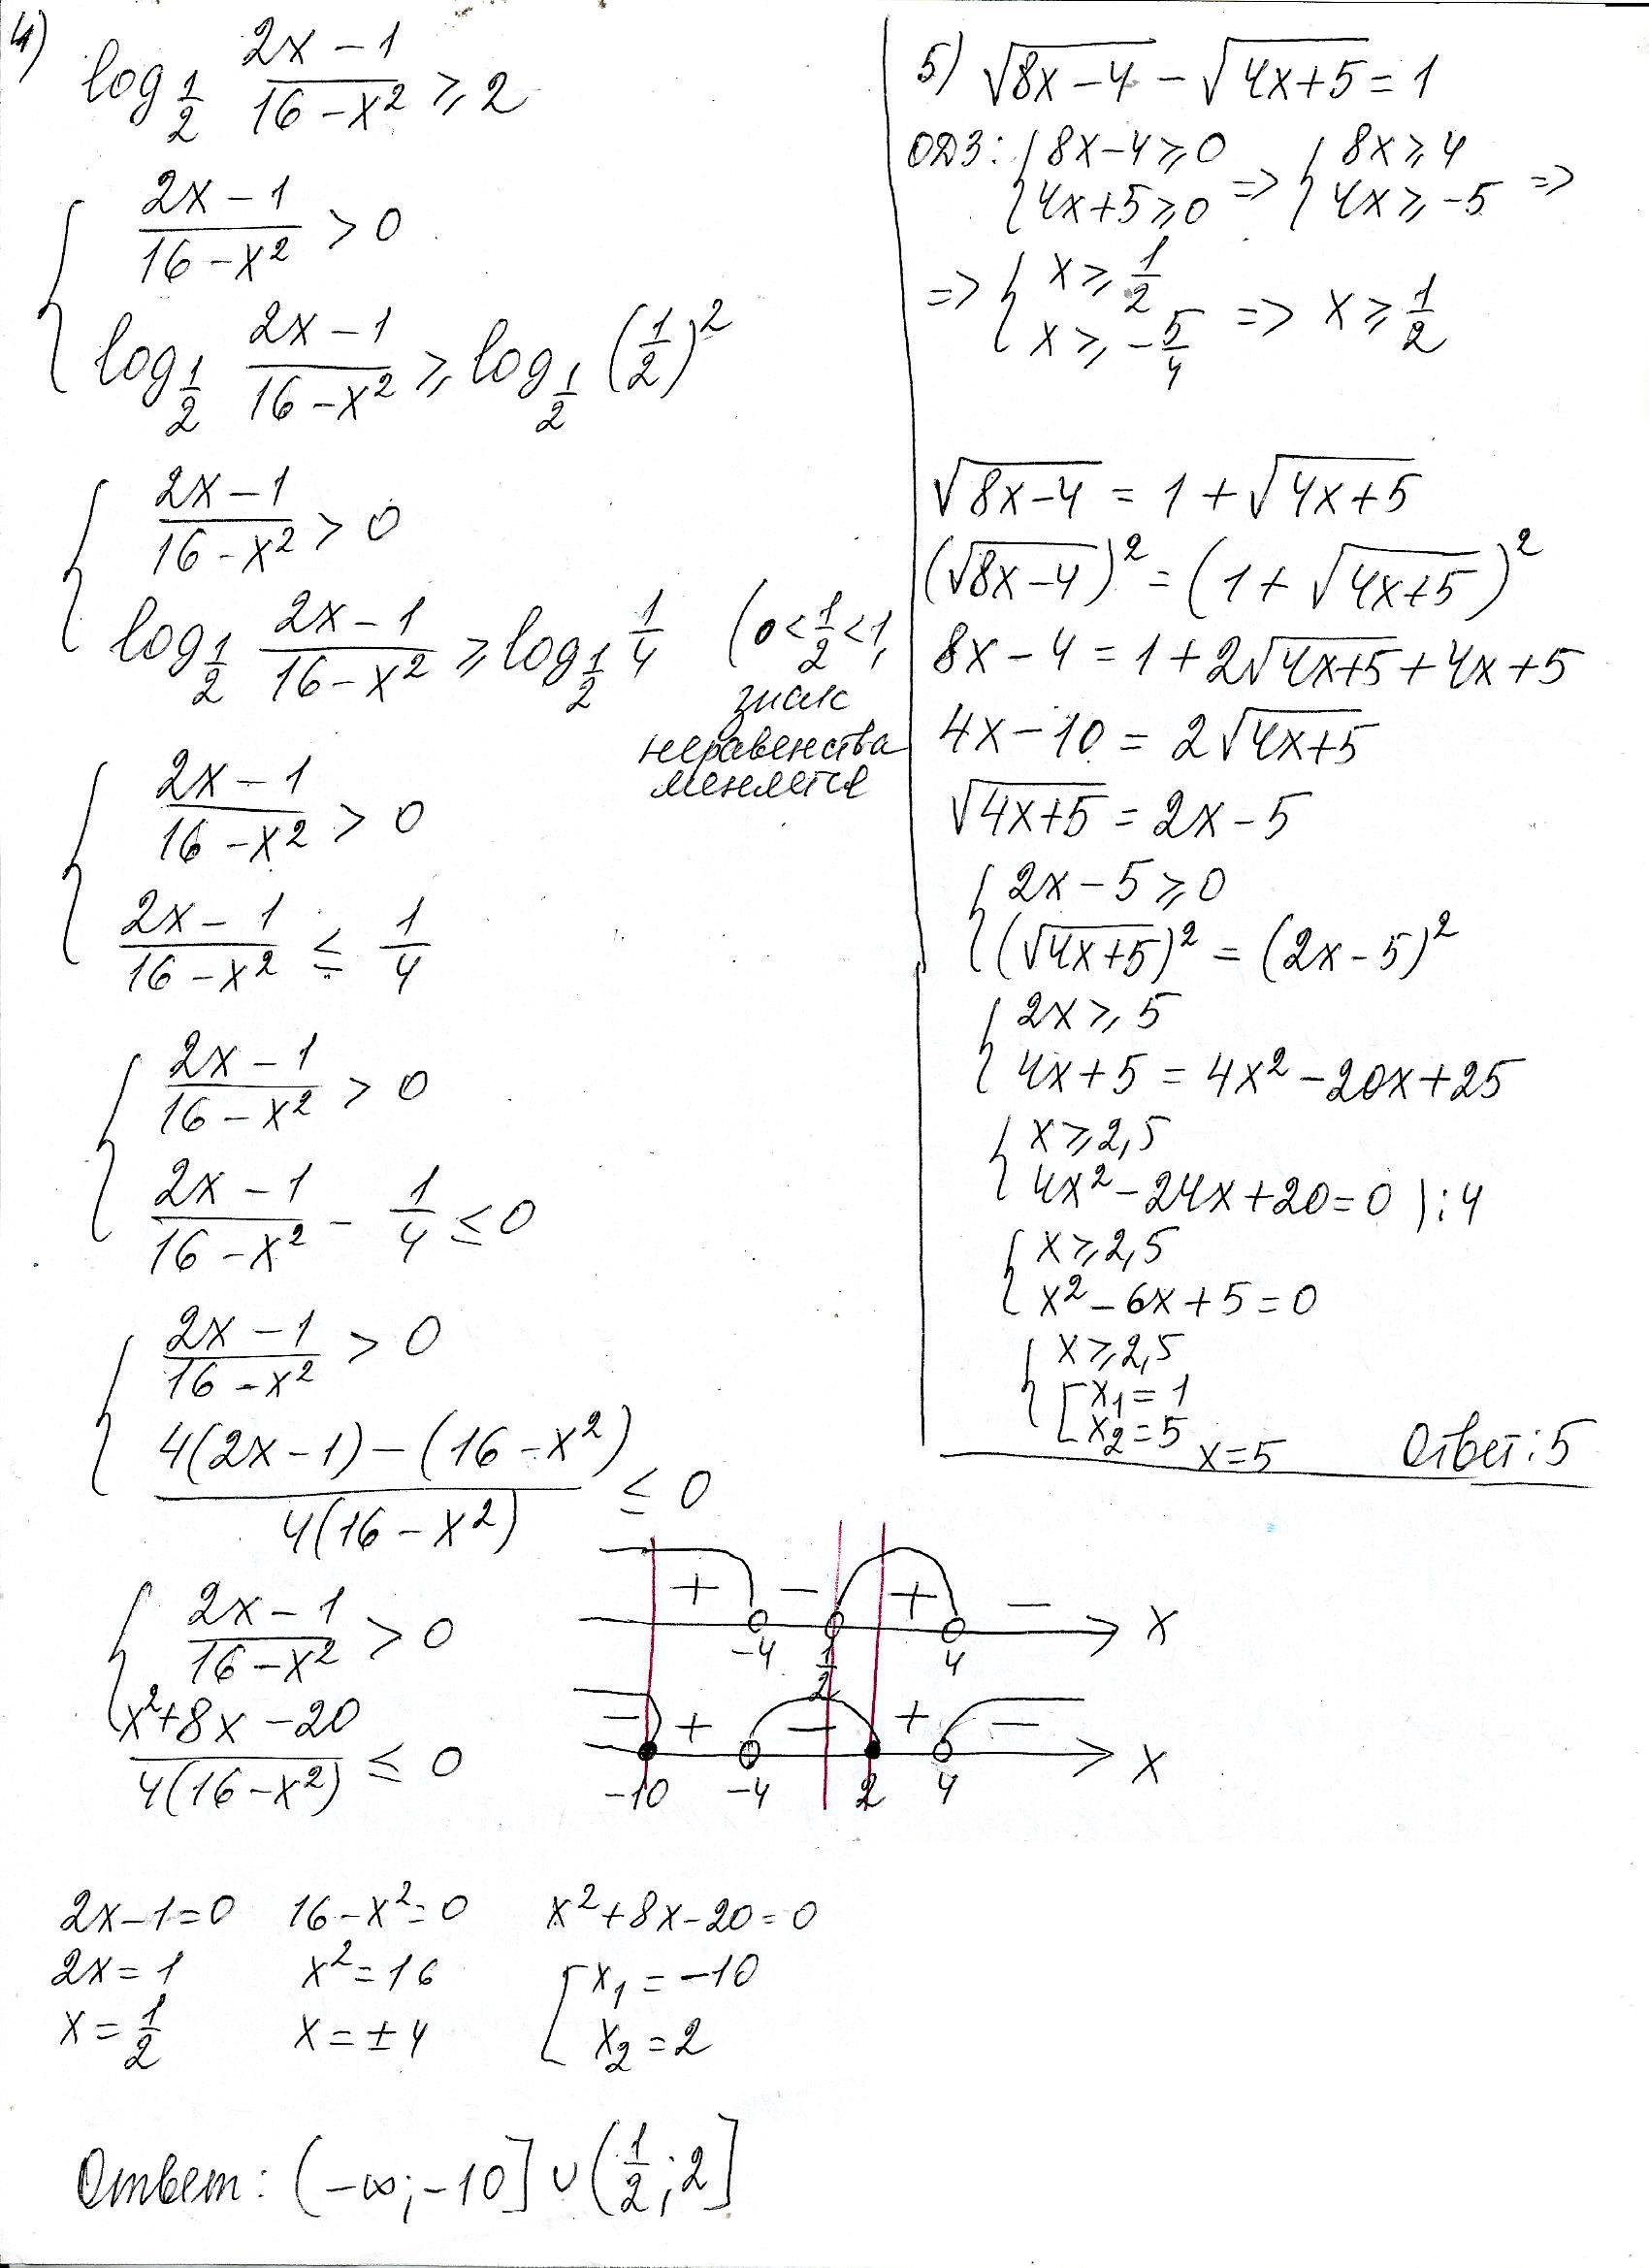 4) log_{1/2} (2x-1)/(16-x²) ≥ 2
{ (2x-1)/(16-x²) > 0
log_{1/2} (2x-1)/(16-x²) ≥ log_{1/2} (1/2)²
{ (2x-1)/(16-x²) > 0
log_{1/2} (2x-1)/(16-x²) ≥ log_{1/2} 1/4 (0<1/2<1,
знак
неравенства
меняется
{ (2x-1)/(16-x²) > 0
(2x-1)/(16-x²) ≤ 1/4
{ (2x-1)/(16-x²) > 0
(2x-1)/(16-x²) - 1/4 ≤ 0
{ (2x-1)/(16-x²) > 0
(4(2x-1)-(16-x²))/(4(16-x²)) ≤ 0
{ (2x-1)/(16-x²) > 0
(x²+8x-20)/(4(16-x²)) ≤ 0
+ - + -
-4 1/2 4 x
- + - + -
-10 -4 2 4 x
2x-1=0 16-x²=0 x²+8x-20=0
2x=1 x²=16 [ x₁=-10
x=1/2 x=±4 x₂=2
Ответ: (-∞;-10]∪(1/2;2]
5) √(8x-4) - √(4x+5) = 1
ОДЗ: { 8x-4≥0 => { 8x≥4
4x+5≥0 4x≥-5 =>
=> { x≥1/2
x≥-5/4 => x≥1/2
√(8x-4) = 1+√(4x+5)
(√(8x-4))² = (1+√(4x+5))²
8x-4 = 1+2√(4x+5)+4x+5
4x-10 = 2√(4x+5)
√(4x+5) = 2x-5
{ 2x-5≥0
(√(4x+5))² = (2x-5)²
{ 2x≥5
4x+5 = 4x²-20x+25
{ x≥2,5
4x²-24x+20=0 ):4
{ x≥2,5
x²-6x+5=0
{ x≥2,5
[ x₁=1
x₂=5 x=5 Ответ: 5